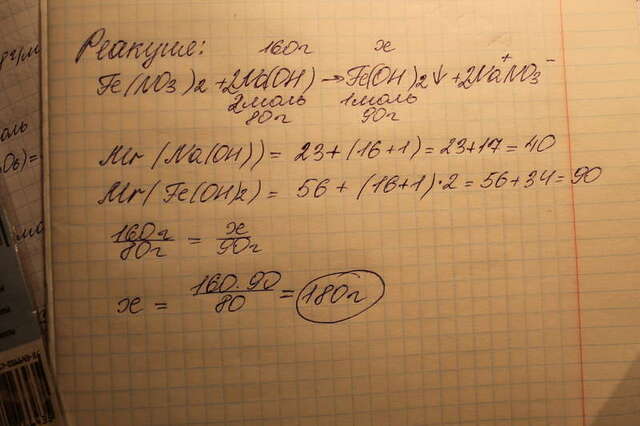 Реакция:
160г x
Fe(NO₃)₂ + 2Na(OH) → Fe(OH)₂↓ + 2Na⁺NO₃⁻
2моль 1моль
80г 90г
Mr (Na(OH)) = 23+(16+1) = 23+17 = 40
Mr (Fe(OH)2) = 56 + (16+1)·2 = 56+34 = 90
160г/80г = x/90г
x = 160·90/80 = 180г